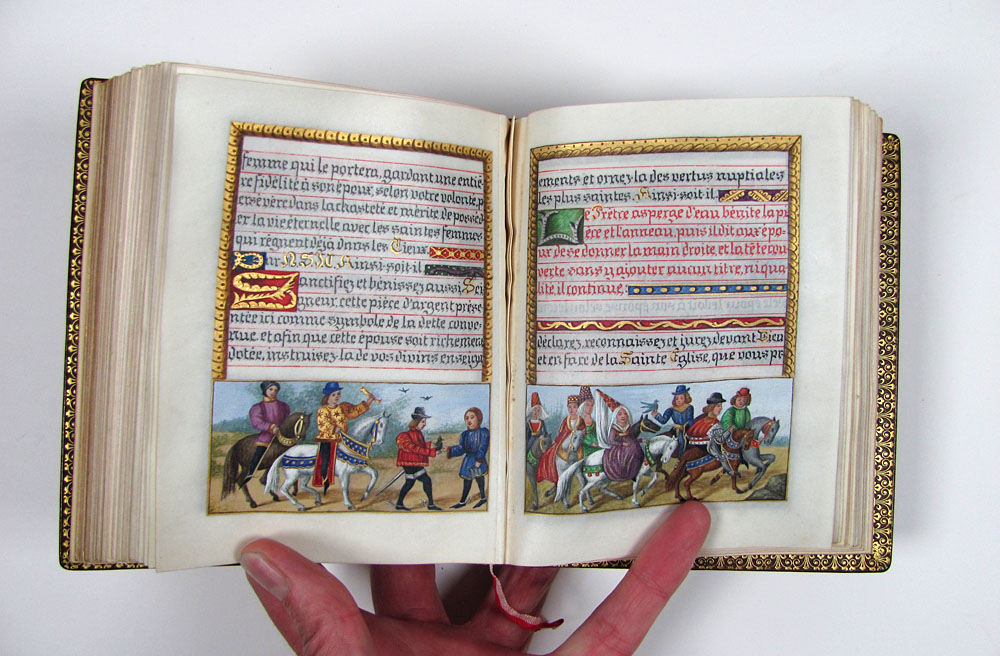 femme qui le portera, gardant une entiè-
re fidélité à son époux, selon votre volonté, p
ersévère dans la chasteté et mérite de posséd
er la vie éternelle avec les saintes femmes
qui règnent déjà dans les Cieux
Par N.S.J.C. Ainsi soit-il
Sanctifiez et bénissez aussi Sei
gneur, cette pièce d'argent prése-
ntée ici comme symbole de la dette conve-
nue et afin que cette épouse soit richement
dotée, instruisez-la de vos divins enseign
ements et ornez-la des vertus nuptiales
les plus saintes. Ainsi soit il
Le Prêtre asperge d'eau bénite la pi
èce et l'anneau, puis il dit aux épo-
ux de se donner la main droite, et la tête cou
verte sans y ajouter aucun titre, ni qua-
lité, il continue:
déclarez, reconnaissez et jurez devant Dieu
et en face de la Sainte Eglise, que vous pr